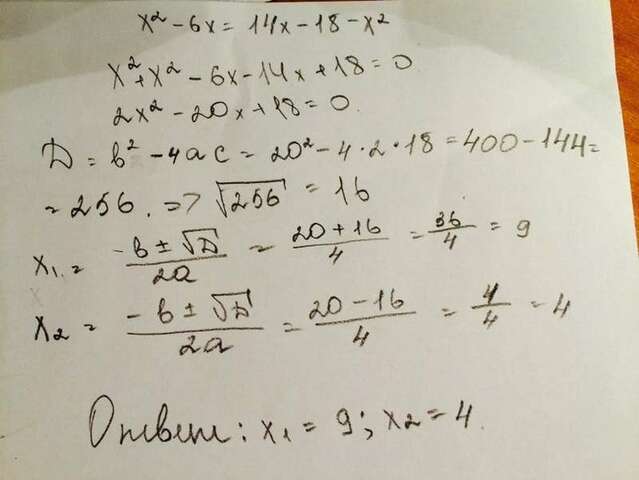 x² - 6x = 14x - 18 - x²
x² + x² - 6x - 14x + 18 = 0
2x² - 20x + 18 = 0
D = b² - 4ac = 20² - 4·2·18 = 400 - 144 =
= 256. => √256 = 16
x₁ = (-b ± √D)/2a = (20 + 16)/4 = 36/4 = 9
x₂ = (-b ± √D)/2a = (20 - 16)/4 = 4/4 = 4
Ответ: x₁ = 9; x₂ = 4.